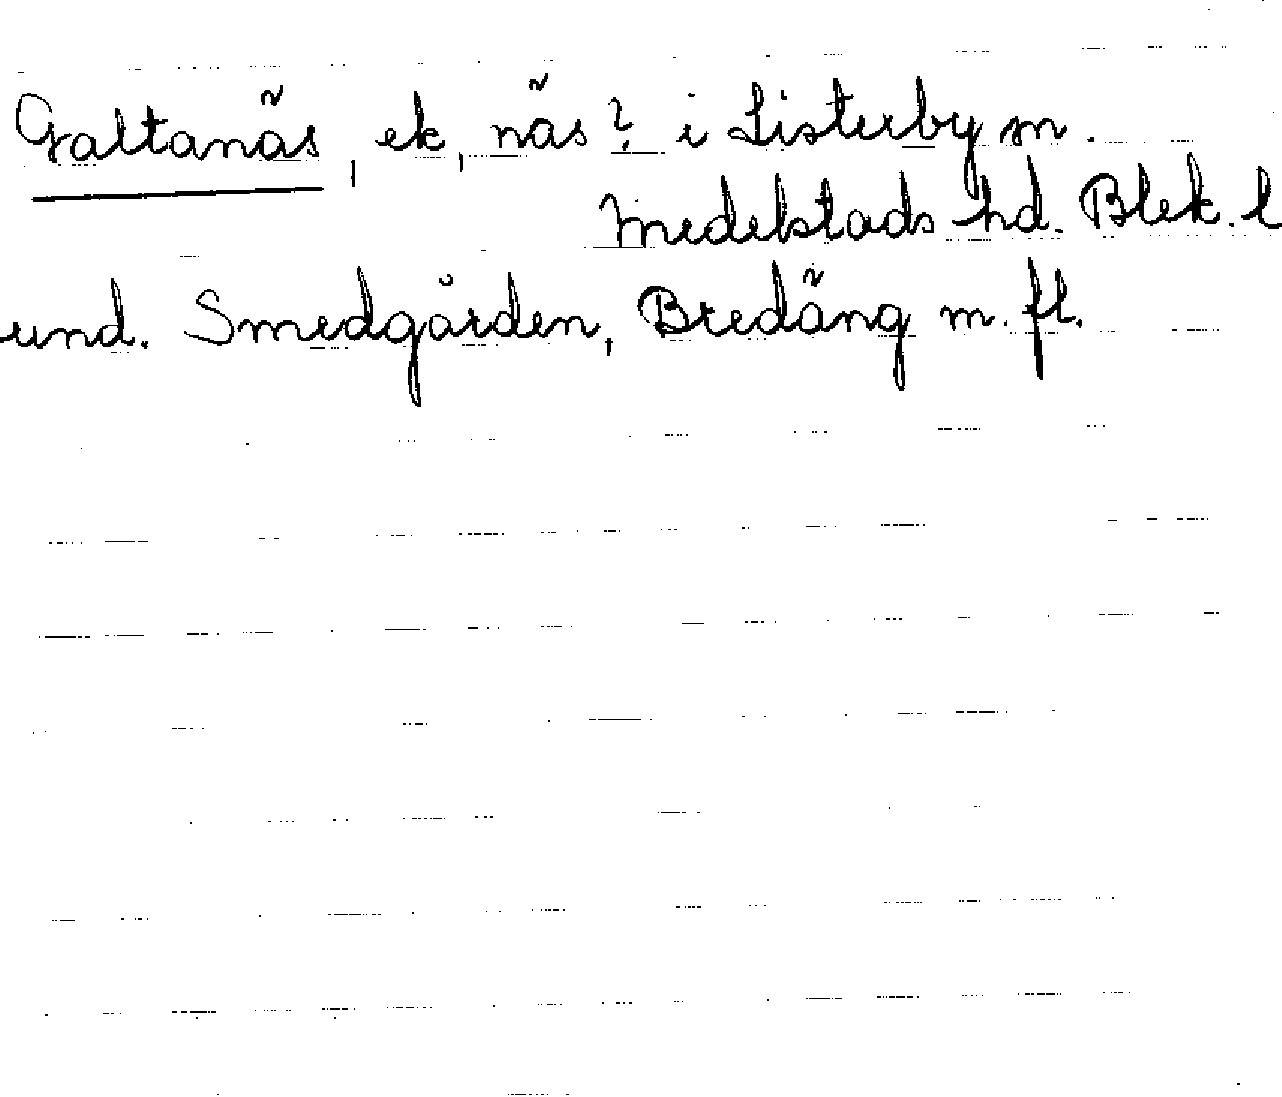 Galtanäs, ek, näs? i Listerby sn.
Medelstads hd. Blek. l
und. Smedgården, Bredäng m. fl.